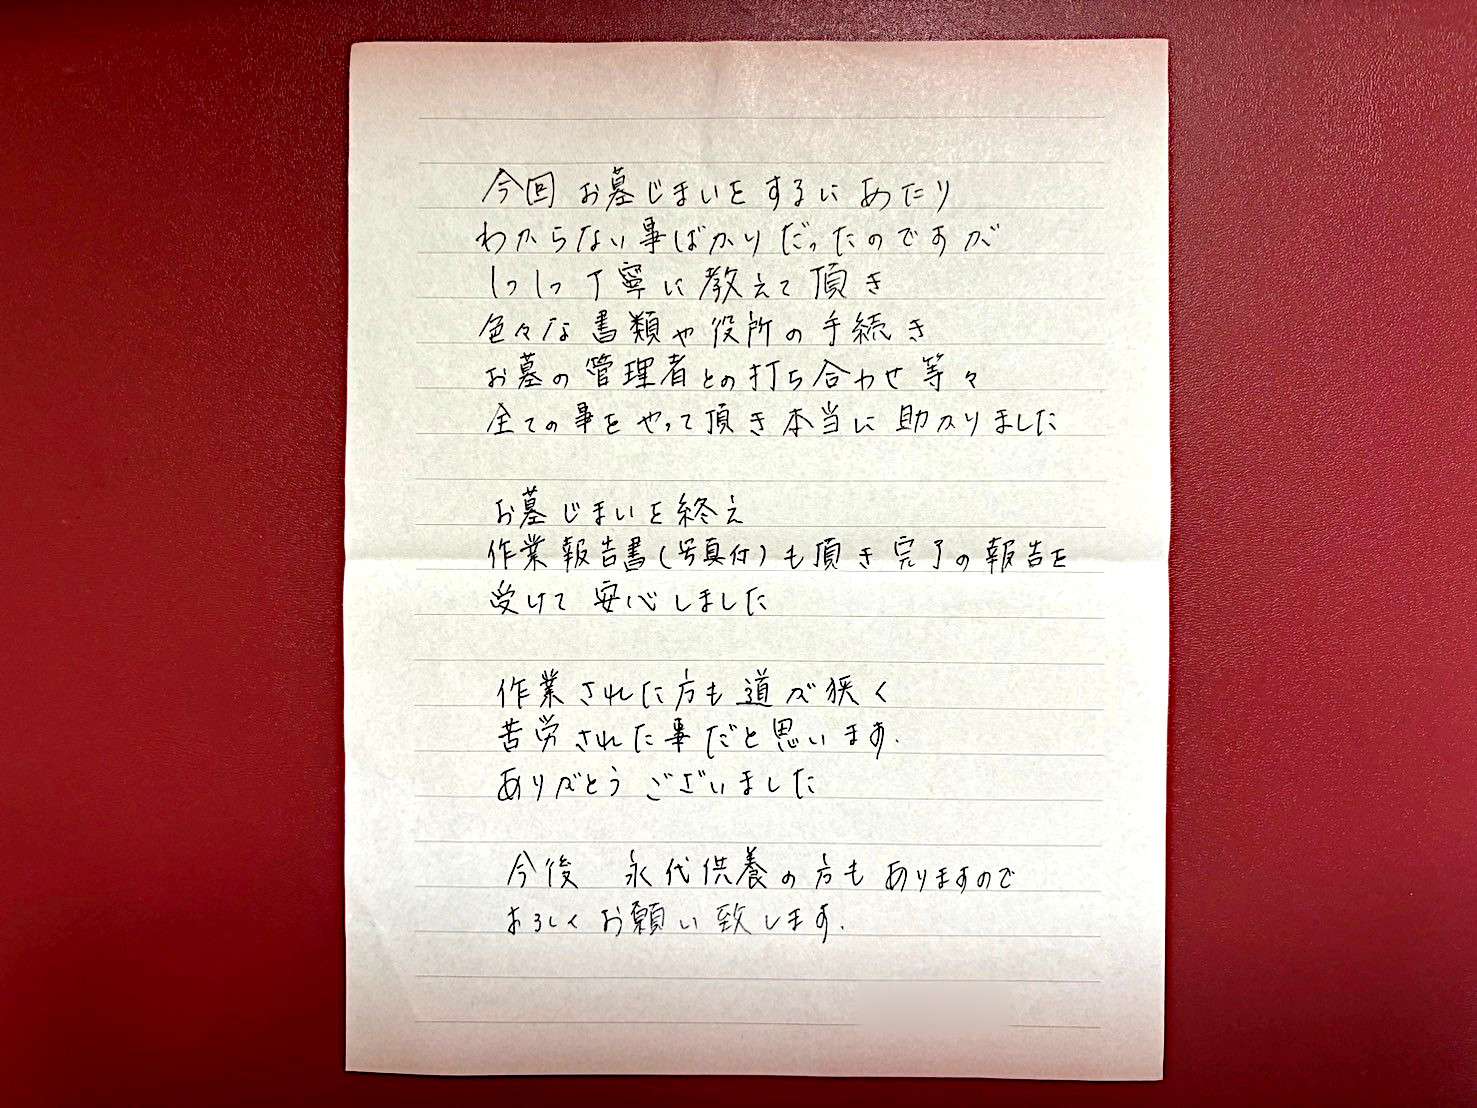 今回 お墓じまいをするにあたり
わからない事ばかりだったのですが
1つ1つ丁寧に教えて頂き
色々な書類や役所の手続き
お墓の管理者との打ち合わせ等々
全ての事をやって頂き本当に助かりました
お墓じまいを終え
作業報告書(写真付)も頂き完了の報告を
受けて安心しました
作業された方も道が狭く
苦労された事だと思います.
ありがとうございました
今後 永代供養の方もありますので
よろしくお願い致します.